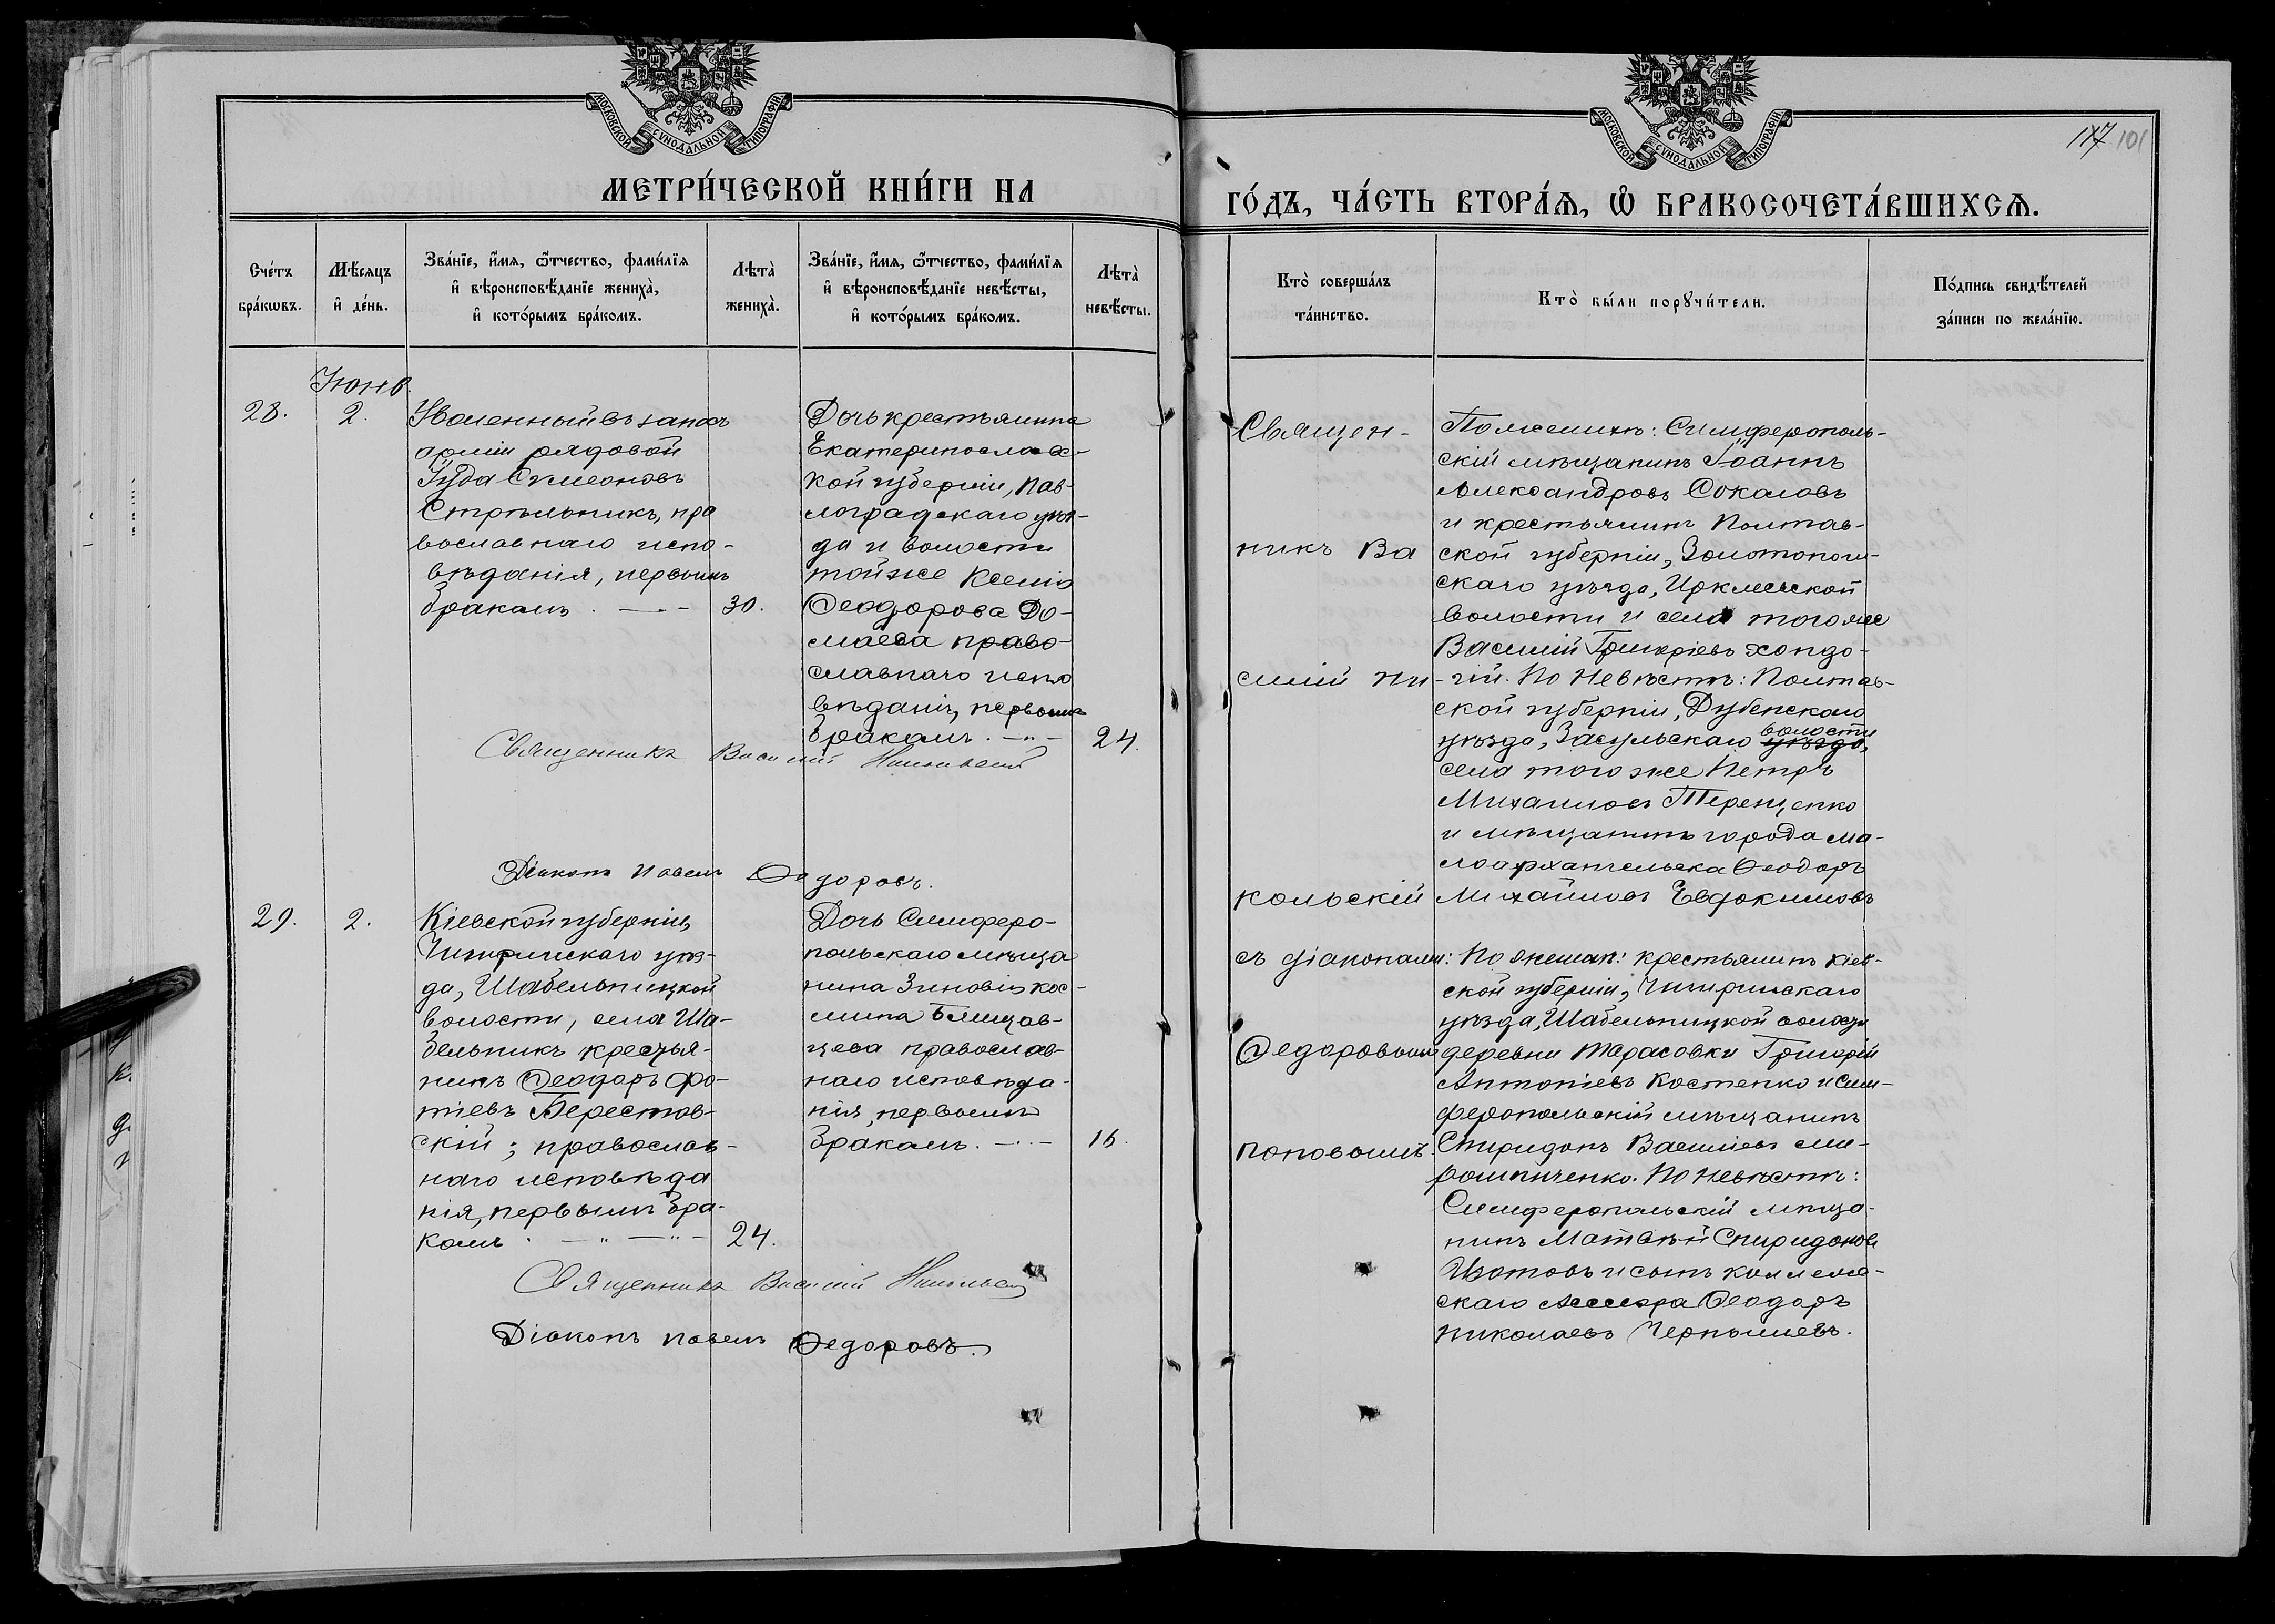 МОСКОВСКОЙ СѴНОДАЛЬНОЙ ТИПОГРАФІИ
МЕТРИ́ЧЕСКОЙ КНИ́ГИ НА
Сче́тъ бра́кωвъ.
Мѣ́сяцъ и҆ де́нь.
Зва́нїе, и҆́мя, ѻ҆́тчество, фами́лїя
и҆ вѣроисповѣ́данїе жениха̀,
и҆ кото́рымъ бра́комъ.
Лѣта̀ жениха̀.
Зва́нїе, и҆́мя, ѻ҆́тчество, фами́лїя
и҆ вѣроисповѣ́данїе невѣ́сты,
и҆ кото́рымъ бра́комъ.
Лѣта̀ невѣ́сты.
Іюнь.
28.
2.
Уволенный въ запасъ
арміи рядовой
Іуда Симеоновъ
Стрѣльникъ, пра
вославнаго испо-
вѣданія, первымъ
бракомъ.
30.
Дочь крестьянина
Екатеринославс-
кой губерніи, Пав-
лоградскаго уѣз-
да и волости
той же Ксенія
Ѳеодорова До-
маева право-
славнаго испо
вѣданія, первымъ
бракомъ.
24.
Священникъ Василій Никольскій
Діаконъ Павелъ Ѳедоровъ.
29.
2.
Кіевской губерніи,
Чигиринскаго уѣз-
да, Шабельницкой
волости, села Ша-
бельникъ крестья-
нинъ Ѳеодоръ Фо-
тіевъ Берестов-
скій; православ-
наго исповѣда
нія, первымъ бра-
комъ.
24.
Дочь Симферо-
польскаго мѣща
нина Зиновія Кос-
мина
цева православ-
наго исповѣда-
нія, первымъ
бракомъ.
16.
Священникъ Василій Никольскій
Діаконъ Павелъ Ѳедоровъ.
МОСКОВСКОЙ СѴНОДАЛЬНОЙ ТИПОГРАФІИ
117 101
ГО́ДЪ, ЧА́СТЬ ВТОРА́Ѧ, Ѡ҆ БРАКОСОЧЕТА́ВШИХСѦ.
Кто̀ соверша́лъ та́инство.
Кто̀ бы́ли порꙋчи́тели.
По́дпись свидѣ́телей
за́писи по жела́нїю.
Священ-
никъ Ва
силій Ни-
кольскій
съ діакономъ:
Ѳедоровымъ
Поповымъ.
По женихѣ: Симферополь-
скій мѣщанинъ Іоаннъ
Александровъ Соколовъ
и крестьянинъ Полтав-
ской губерніи, Золотонош-
скаго уѣзда, Ирклеевской
волости и села того же
Василій Григоріевъ Хондо-
гій. По Невѣстѣ: Полтав-
ской губерніи, Лубенскаго
уѣзда, Засульскаго уѣзда, волости
села того же Петръ
Михаиловъ Терещенко
и мѣщанинъ города Ма-
лоархангельска Ѳеодоръ
Михаиловъ Евдокимовъ
По женихѣ: крестьянинъ Кіев-
ской губерніи, Чигиринскаго
уѣзда, Шабельницкой волости
деревни Тарасовки Григорій
Антоніевъ Костенко и Сим-
феропольскій мѣщанинъ
Спиридонъ Васильевъ Ми-
рошниченко. По невѣстѣ:
Симферопольскій мѣща-
нинъ Матвѣй Спиридоновъ
Изотовъ и сынъ коллеж-
скаго Асесора Ѳеодоръ
Николаевъ Чернышевъ.